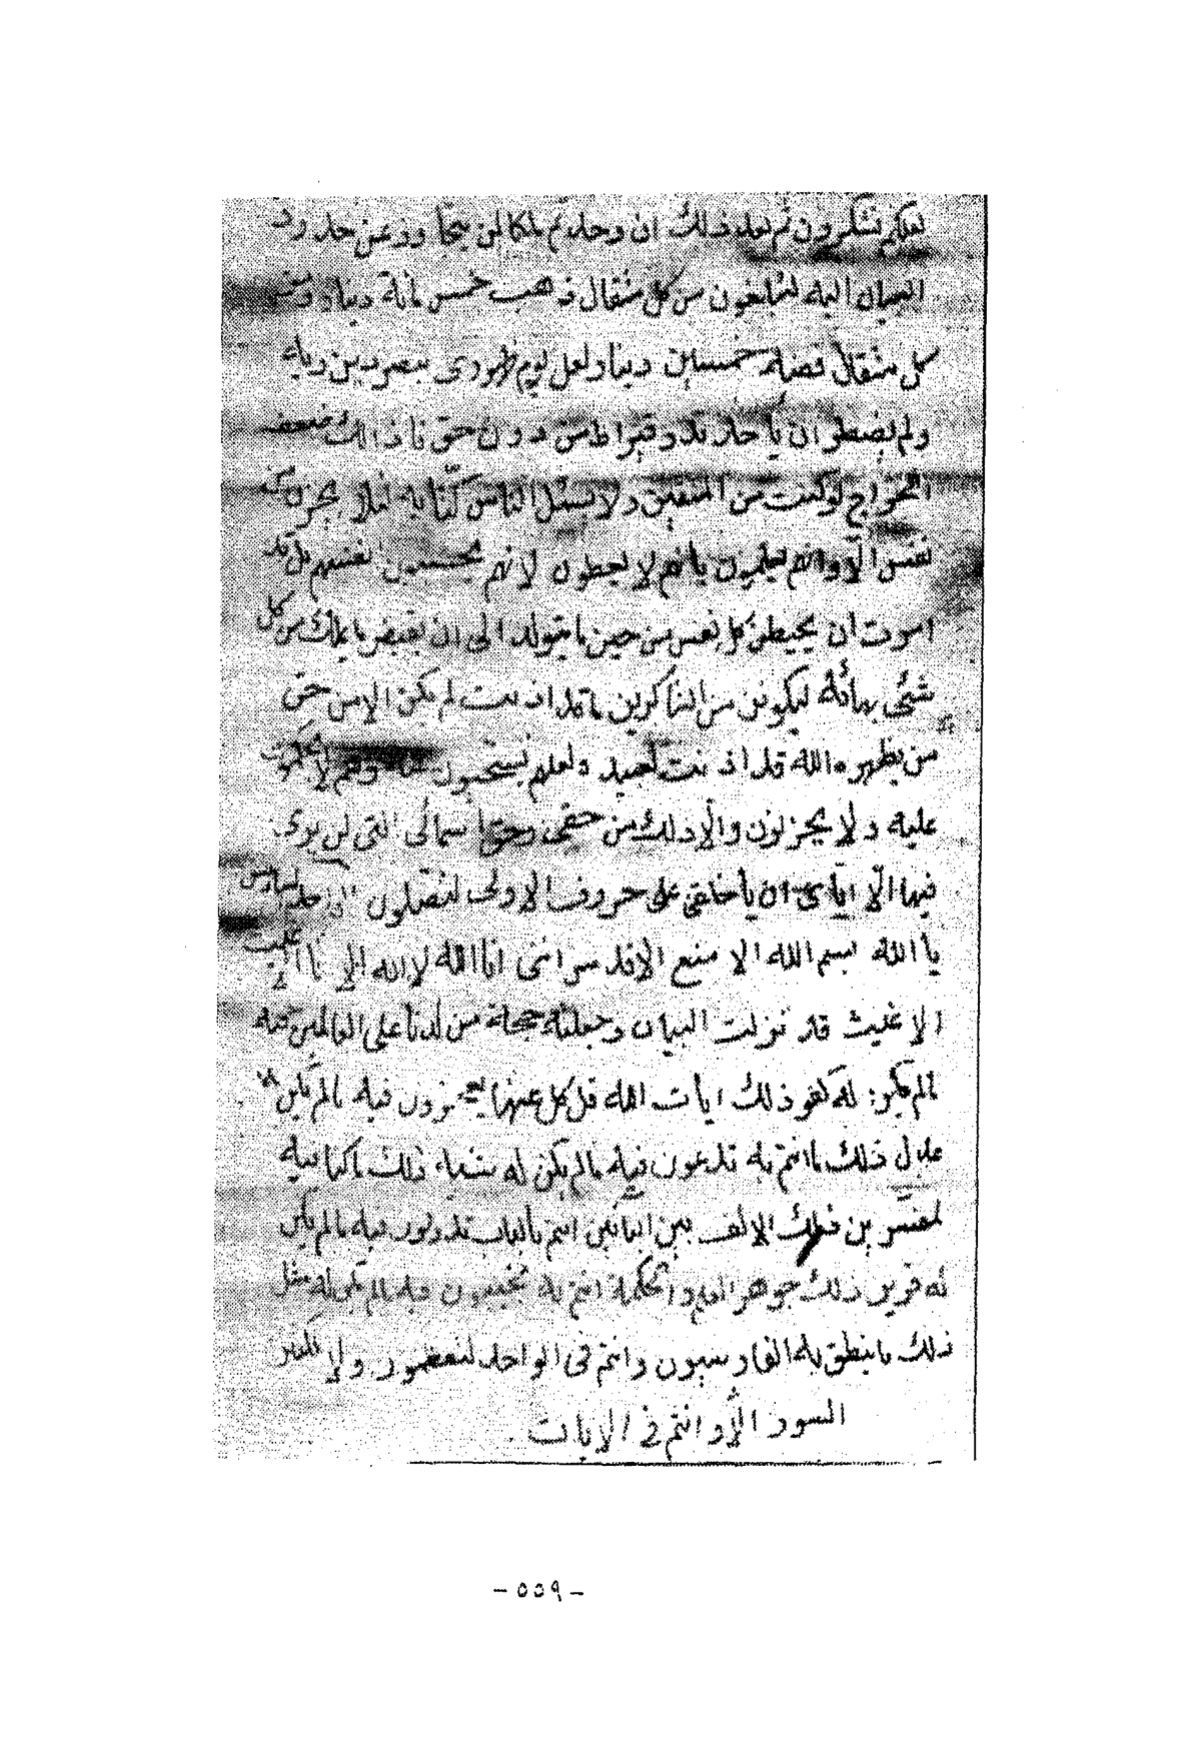 لعلكم تشكرون ثم بعد ذلك ان وجدتم ملكا لن يتجاوز عن حدود
البيان اليه لتبلغون من كل مثقال ذهب خمس مائة دينار ومن
كل مثقال فضة خمسين دينار لعل يوم ظهوري ينصر دين ربه
ولم يضطر ان يأخذ قدر قيراط من دون حق فاذا لك ضعف
الخراج لو كنت من المتقين ولا يسئل الناس كتابه لئلا يحزن
نفس الا وانهم يعلمون بانهم لا يعطون لانهم يحبسون انفسهم بل قد
امرت ان يحيطن كل نفس من حين ما يتولد الى ان يقبض ما يملك من كل
شئ بهائه ليكونن من الشاكرين ما قد اذنت لم يكن الا من حق
من يظهره الله قد اذنت لعبيد ولعلهم يستحيون وهم لا يحكمون
عليه ولا يحزنون والا ذلك من حقي وحق اسمائى التى لن يرى
فيها الا اياى ان يا خلقى على حروف الاولى لتصلون
يا الله بسم الله الا منع الاقدس اننى انا الله لا اله الا انا
الا غيث قد نزلت البيان وجعلته حجة من لدنا على العالمين فيه
مالم يكن له كفو ذلك ايات الله قل كل عنها يعجزون فيه مالم يكن له
عدل ذلك ما انتم به تدعون فيه مالم يكن له شبه ذلك ما كنا فيه
لمفسرين فيه مالم يكن
له قرين ذلك جواهر العلم والحكمة انتم به تجيبون فيه مالم يكن له مثل
ذلك ما ينطق به الفارسيون وانتم فى الواحد لتنظمون ولا
السور الا وانتم فى الايات
- ٥٥٩ -